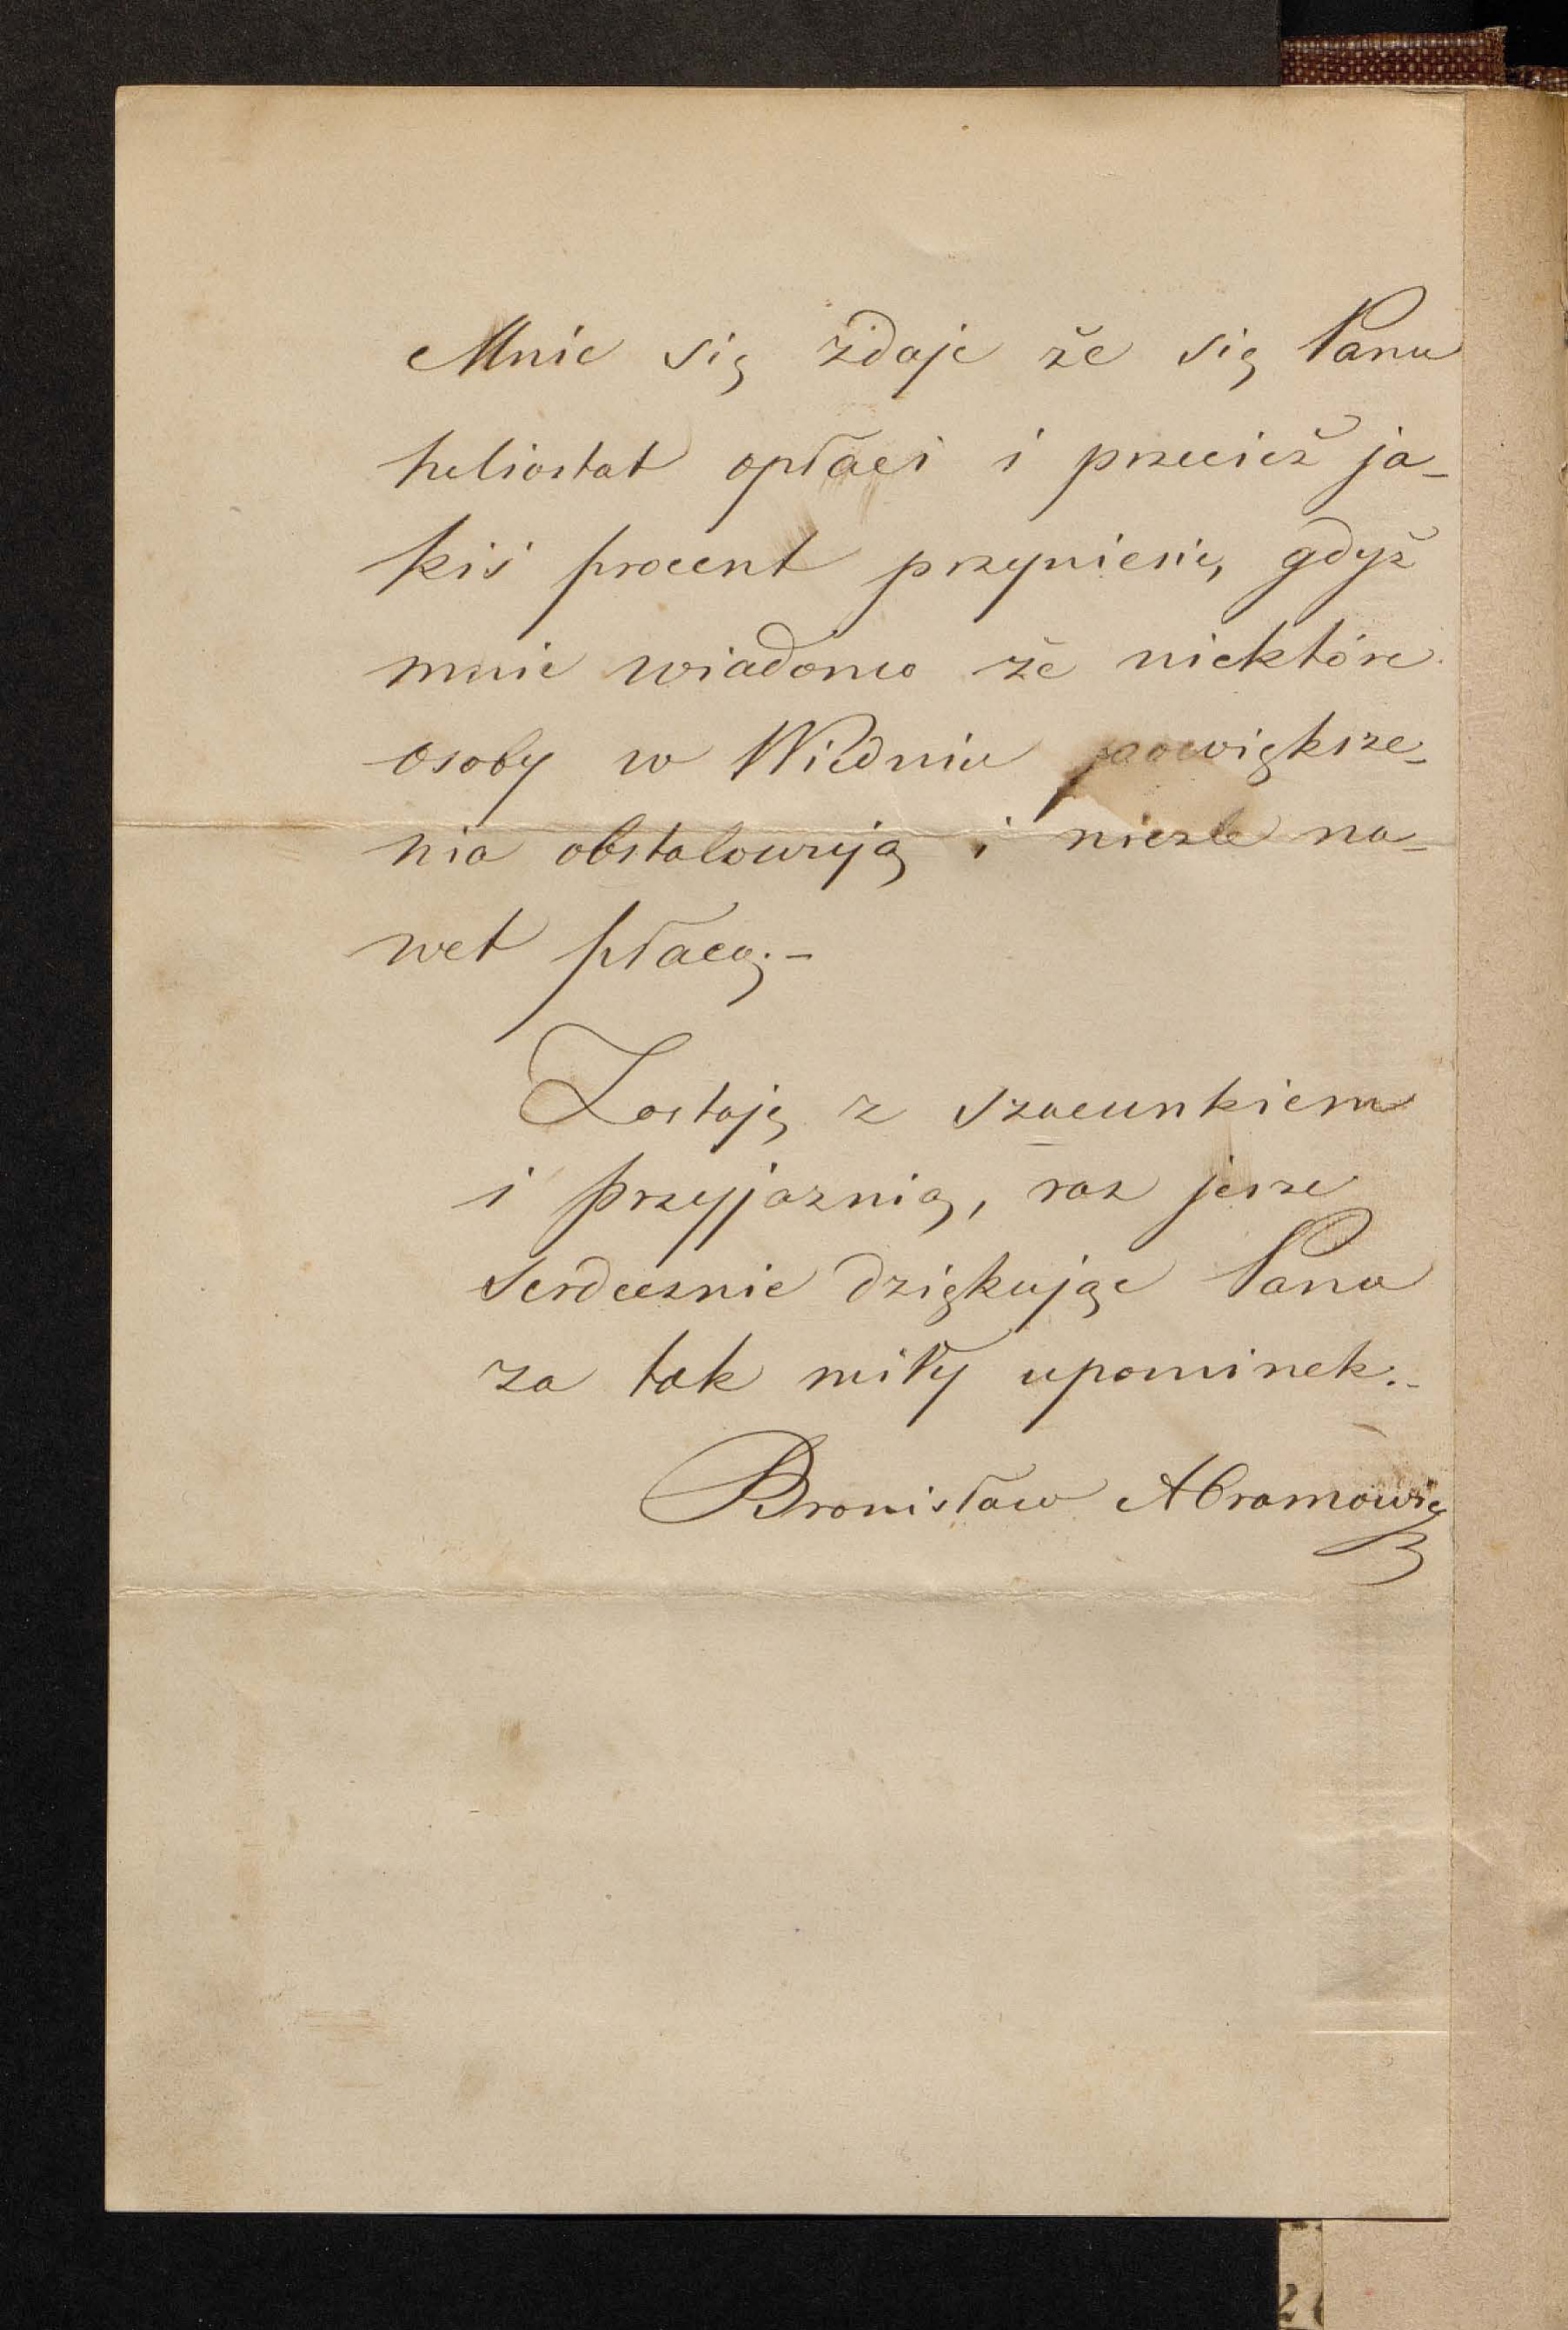 Mnie się zdaje że się Panu
heliostat opłaci i przecież ja-
kiś procent przyniesie, gdyż
mnie wiadomo że niektóre
osoby w Wiedniu powiększe-
nia obstalowują i nieźle na-
wet płacą.-
Zostaję z szacunkiem
i przyjaznią, raz jesze
serdecznie dziękując Panu
za tak miły upominek.-
Bronisław Abramowicz